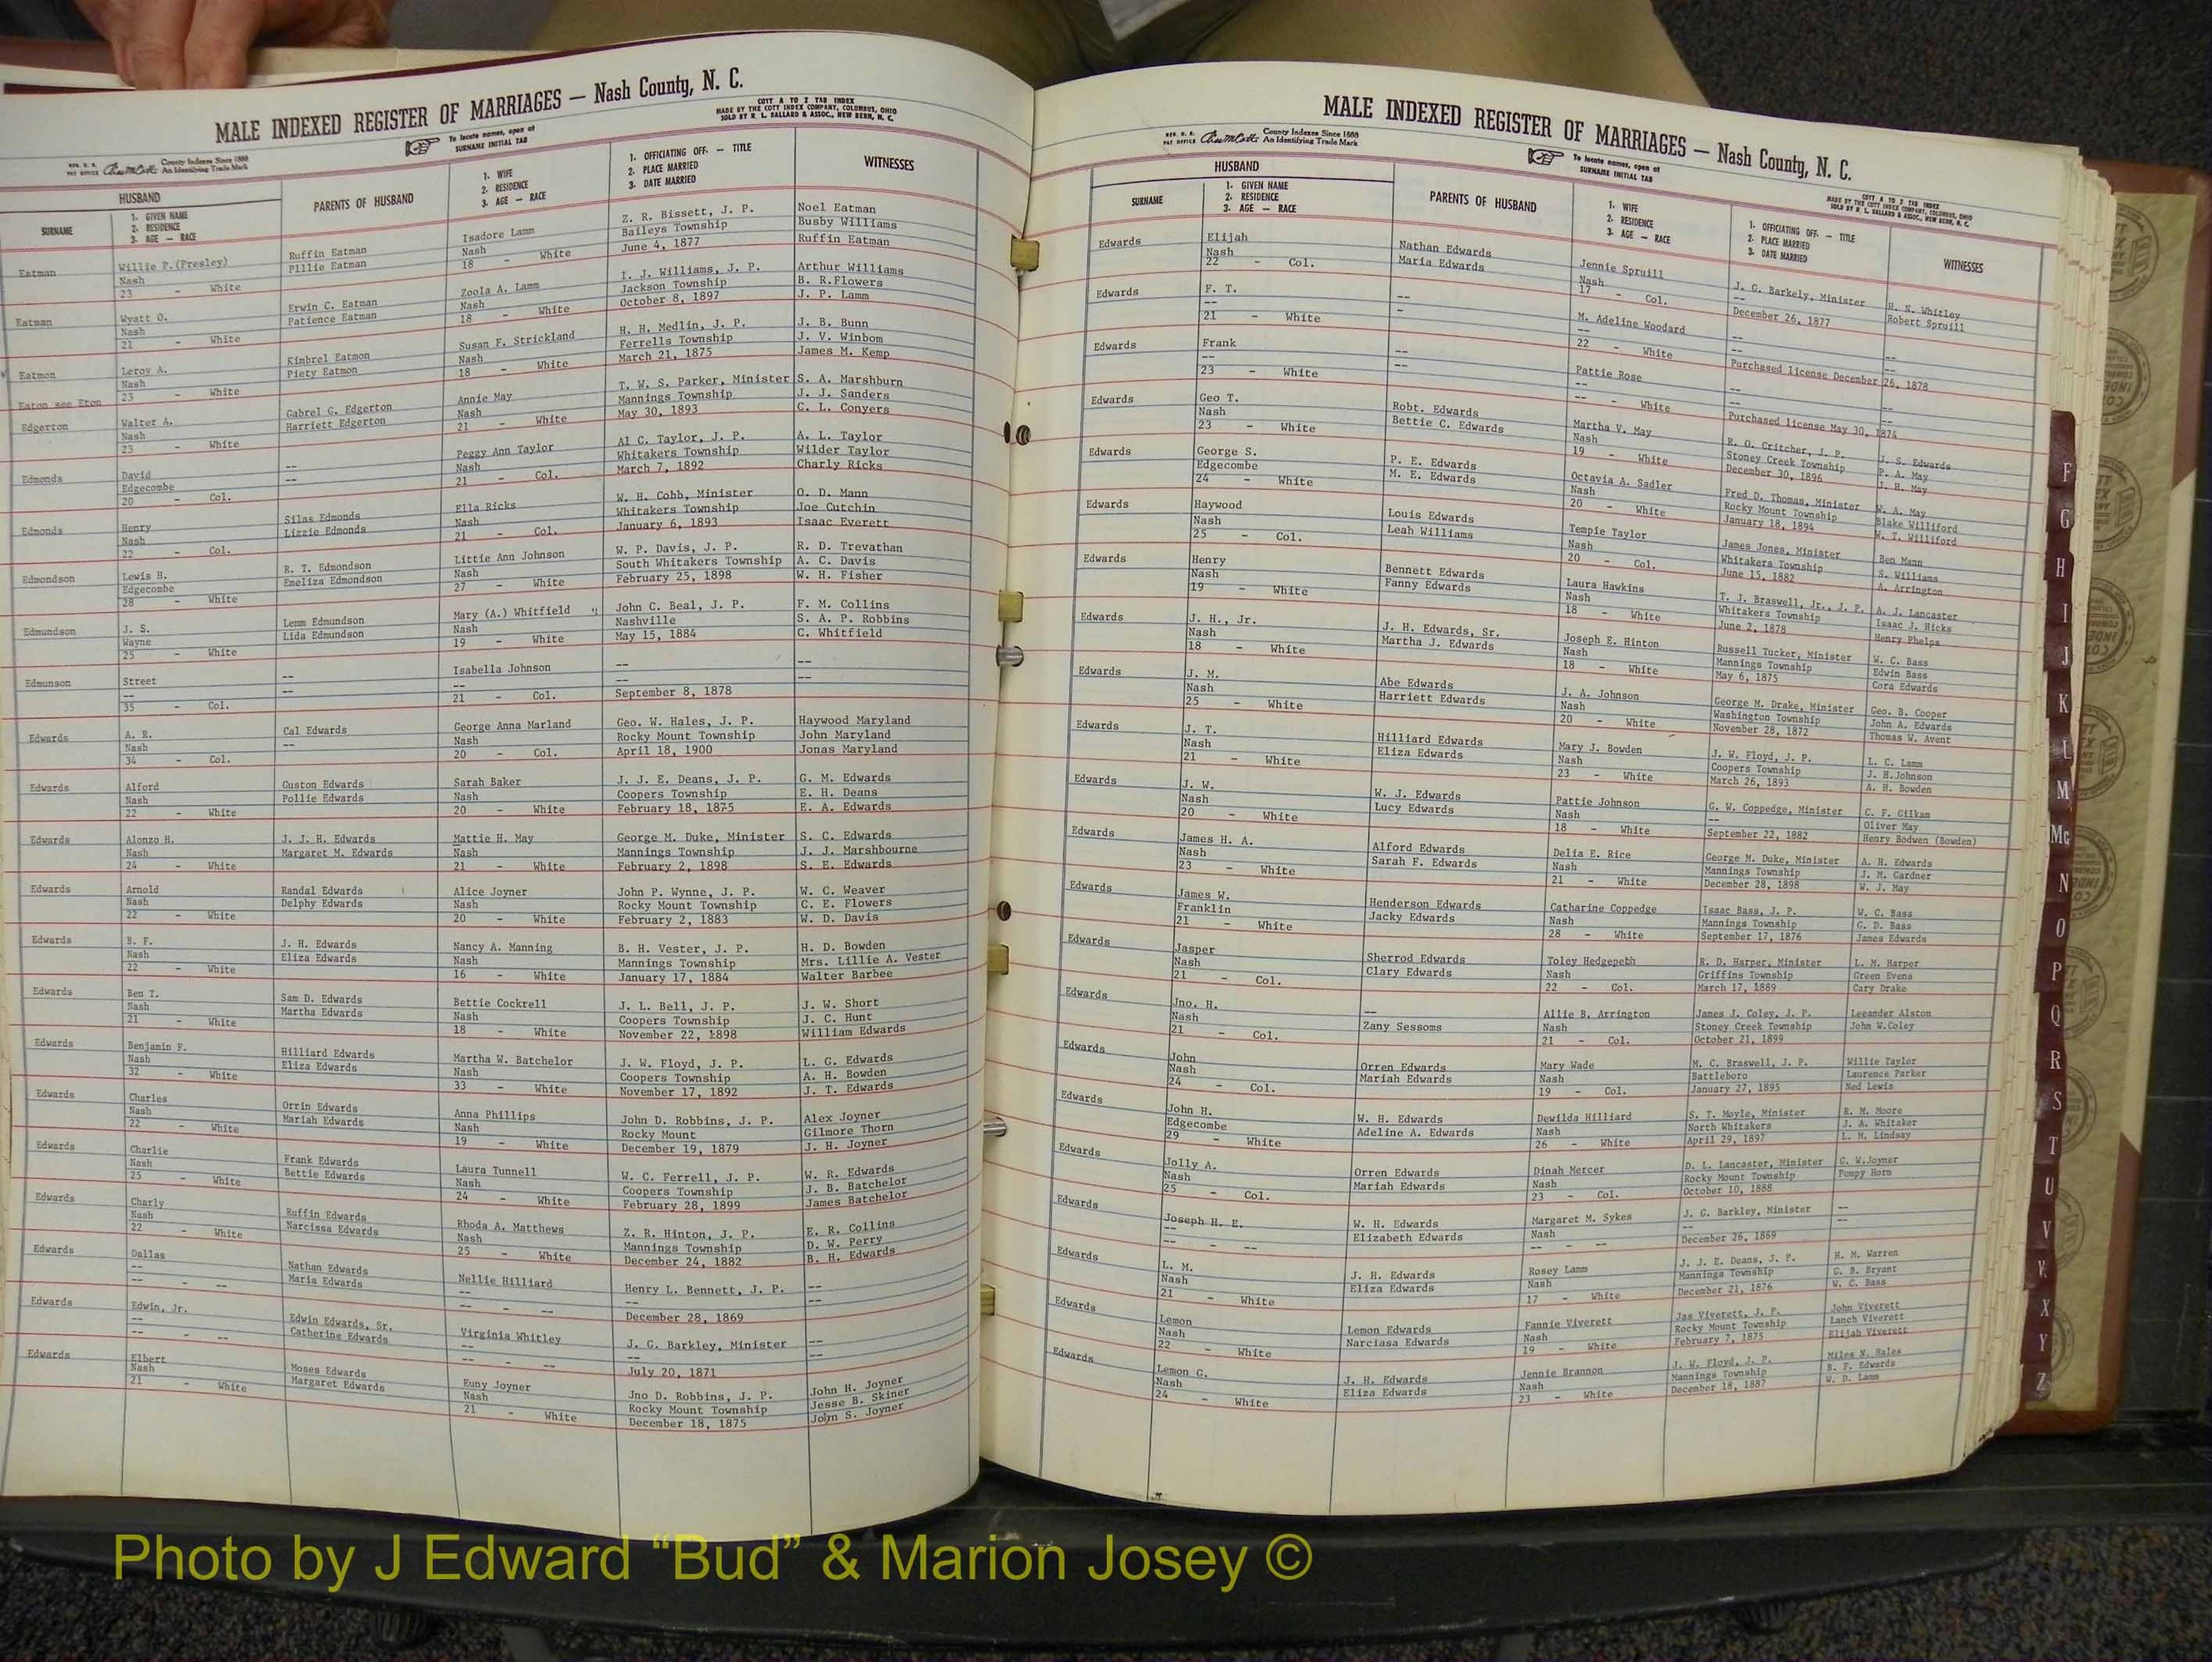 MALE INDEXED REGISTER OF MARRIAGES — Nash County, N. C.
COTT A TO Z TAB INDEX
MADE BY THE COTT INDEX COMPANY, COLUMBUS, OHIO
SOLD BY R. L. BALLARD & ASSOC., NEW BERN, N. C.
To locate names, open at
SURNAME INITIAL TAB
REG. U. S.
PAT OFFICE
County Indexes Since 1888
An Identifying Trade Mark
HUSBAND
SURNAME
1. GIVEN NAME
2. RESIDENCE
3. AGE — RACE
PARENTS OF HUSBAND
1. WIFE
2. RESIDENCE
3. AGE — RACE
1. OFFICIATING OFF. — TITLE
2. PLACE MARRIED
3. DATE MARRIED
WITNESSES
Eatman Willie P.(Presley) Ruffin Eatman Isadore Lamm Z. R. Bissett, J. P. Noel Eatman
Nash Plllie Eatman Nash Baileys Township Busby Williams
23 - White 18 - White June 4, 1877 Ruffin Eatman
Eatman Wyatt O. Erwin C. Eatman Zoola A. Lamm I. J. Williams, J. P. Arthur Williams
Nash Patience Eatman Nash Jackson Township B. R.Flowers
21 - White 18 - White October 8, 1897 J. P. Lamm
Eatmon Leroy A. Kimbrel Eatmon Susan F. Strickland H. H. Medlin, J. P. J. B. Bunn
Nash Piety Eatmon Nash Ferrells Township J. V. Winbom
23 - White 18 - White March 21, 1875 James M. Kemp
Eaton see Eton
Edgerton Walter A. Gabrel G. Edgerton Annie May T. W. S. Parker, Minister S. A. Marshburn
Nash Harriett Edgerton Nash Mannings Township J. J. Sanders
23 - White 21 - White May 30, 1893 C. L. Conyers
Edmonds David -- Peggy Ann Taylor Al C. Taylor, J. P. A. L. Taylor
Edgecombe -- Nash Whitakers Township Wilder Taylor
20 - Col. 21 - Col. March 7, 1892 Charly Ricks
Edmonds Henry Silas Edmonds Ella Ricks W. H. Cobb, Minister O. D. Mann
Nash Lizzie Edmonds Nash Whitakers Township Joe Cutchin
22 - Col. 21 - Col. January 6, 1893 Isaac Everett
Edmondson Lewis H. R. T. Edmondson Littie Ann Johnson W. P. Davis, J. P. R. D. Trevathan
Edgecombe Emeliza Edmondson Nash South Whitakers Township A. C. Davis
28 - White 27 - White February 25, 1898 W. H. Fisher
Edmundson J. S. Lemm Edmundson Mary (A.) Whitfield John C. Beal, J. P. F. M. Collins
Wayne Lida Edmundson Nash Nashville S. A. P. Robbins
25 - White 19 - White May 15, 1884 C. Whitfield
Edmunson Street -- Isabella Johnson -- --
-- -- -- -- --
35 - Col. 21 - Col. September 8, 1878
Edwards A. R. Cal Edwards George Anna Marland Geo. W. Hales, J. P. Haywood Maryland
Nash -- Nash Rocky Mount Township John Maryland
34 - Col. 20 - Col. April 18, 1900 Jonas Maryland
Edwards Alford Guston Edwards Sarah Baker J. J. E. Deans, J. P. G. M. Edwards
Nash Pollie Edwards Nash Coopers Township E. H. Deans
22 - White 20 - White February 18, 1875 E. A. Edwards
Edwards Alonzo H. J. J. H. Edwards Mattie H. May George M. Duke, Minister S. C. Edwards
Nash Margaret M. Edwards Nash Mannings Township J. J. Marshbourne
24 - White 21 - White February 2, 1898 S. E. Edwards
Edwards Arnold Randal Edwards Alice Joyner John P. Wynne, J. P. W. C. Weaver
Nash Delphy Edwards Nash Rocky Mount Township C. E. Flowers
22 - White 20 - White February 2, 1883 W. D. Davis
Edwards B. F. J. H. Edwards Nancy A. Manning B. H. Vester, J. P. H. D. Bowden
Nash Eliza Edwards Nash Mannings Township Mrs. Lillie A. Vester
22 - White 16 - White January 17, 1884 Walter Barbee
Edwards Ben T. Sam D. Edwards Bettie Cockrell J. L. Bell, J. P. J. W. Short
Nash Martha Edwards Nash Coopers Township J. C. Hunt
21 - White 18 - White November 22, 1898 William Edwards
Edwards Benjamin F. Hilliard Edwards Martha W. Batchelor J. W. Floyd, J. P. L. G. Edwards
Nash Eliza Edwards Nash Coopers Township A. H. Bowden
32 - White 33 - White November 17, 1892 J. T. Edwards
Edwards Charles Orrin Edwards Anna Phillips John D. Robbins, J. P. Alex Joyner
Nash Mariah Edwards Nash Rocky Mount Gilmore Thorn
22 - White 19 - White December 19, 1879 J. H. Joyner
Edwards Charlie Frank Edwards Laura Tunnell W. C. Ferrell, J. P. W. R. Edwards
Nash Bettie Edwards Nash Coopers Township J. B. Batchelor
25 - White 24 - White February 28, 1899 James Batchelor
Edwards Charly Ruffin Edwards Rhoda A. Matthews Z. R. Hinton, J. P. E. R. Collins
Nash Narcissa Edwards Nash Mannings Township D. W. Perry
22 White 25 - White December 24, 1882 B. H. Edwards
Edwards Dallas Nathan Edwards Nellie Hilliard Henry L. Bennett, J. P. --
-- Maria Edwards -- -- --
-- - -- -- - -- December 28, 1869
Edwards Edwin, Jr. Edwin Edwards, Sr. Virginia Whitley J. G. Barkley, Minister --
-- Catherine Edwards -- -- --
-- - -- -- - -- July 20, 1871
Edwards Elbert Moses Edwards Euny Joyner Jno D. Robbins, J. P. John H. Joyner
Nash Margaret Edwards Nash Rocky Mount Township Jesse B. Skiner
21 - White 21 - White December 18, 1875 John S. Joyner
MALE INDEXED REGISTER OF MARRIAGES — Nash County, N. C.
REG. U. S.
PAT OFFICE
County Indexes Since 1888
An Identifying Trade Mark
To locate names, open at
SURNAME INITIAL TAB
COTT A TO Z TAB INDEX
MADE BY THE COTT INDEX COMPANY, COLUMBUS, OHIO
SOLD BY R. L. BALLARD & ASSOC., NEW BERN, N. C.
HUSBAND
SURNAME
1. GIVEN NAME
2. RESIDENCE
3. AGE — RACE
PARENTS OF HUSBAND
1. WIFE
2. RESIDENCE
3. AGE — RACE
1. OFFICIATING OFF. — TITLE
2. PLACE MARRIED
3. DATE MARRIED
WITNESSES
Edwards Elijah Nathan Edwards Jennie Spruill J. G. Barkely, Minister H. N. Whitley
Nash Maria Edwards Nash -- Robert Spruill
22 - Col. 17 - Col. December 26, 1877
Edwards F. T. -- M. Adeline Woodard -- --
-- - -- --
21 - White 22 - White Purchased license December 26, 1878
Edwards Frank -- Pattie Rose -- --
-- -- -- -- --
23 - White -- - White Purchased license May 30, 1874
Edwards Geo T. Robt. Edwards Martha V. May R. O. Critcher, J. P. J. S. Edwards
Nash Bettie C. Edwards Nash Stoney Creek Township P. A. May
23 - White 19 - White December 30, 1896 J. H. May
Edwards George S. P. E. Edwards Octavia A. Sadler Fred D. Thomas, Minister W. A. May
Edgecombe M. E. Edwards Nash Rocky Mount Township Blake Williford
24 - White 20 - White January 18, 1894 W. T. Williford
Edwards Haywood Louis Edwards Tempie Taylor James Jones, Minister Ben Mann
Nash Leah Williams Nash Whitakers Township S. Williams
25 - Col. 20 - Col. June 15, 1882 A. Arrington
Edwards Henry Bennett Edwards Laura Hawkins T. J. Braswell, Jr., J. P. A. J. Lancaster
Nash Fanny Edwards Nash Whitakers Township Isaac J. Hicks
19 - White 18 - White June 2, 1878 Henry Phelps
Edwards J. H., Jr. J. H. Edwards, Sr. Joseph E. Hinton Russell Tucker, Minister W. C. Bass
Nash Martha J. Edwards Nash Mannings Township Edwin Bass
18 - White 18 - White May 6, 1875 Cora Edwards
Edwards J. M. Abe Edwards J. A. Johnson George M. Drake, Minister Geo. B. Cooper
Nash Harriett Edwards Nash Washington Township John A. Edwards
25 - White 20 - White November 28, 1872 Thomas W. Avent
Edwards J. T. Hilliard Edwards Mary J. Bowden J. W. Floyd, J. P. L. C. Lamm
Nash Eliza Edwards Nash Coopers Township J. H.Johnson
21 - White 23 - White March 26, 1893 A. H. Bowden
Edwards J. W. W. J. Edwards Pattie Johnson G. W. Coppedge, Minister C. F. Gilkan
Nash Lucy Edwards Nash -- Oliver May
20 - White 18 - White September 22, 1882 Henry Bodwen (Bowden)
Edwards James H. A. Alford Edwards Delia E. Rice George M. Duke, Minister A. H. Edwards
Nash Sarah F. Edwards Nash Mannings Township J. M. Gardner
23 - White 21 - White December 28, 1898 W. J. May
Edwards James W. Henderson Edwards Catharine Coppedge Isaac Bass, J. P. W. C. Bass
Franklin Jacky Edwards Nash Mannings Township G. D. Bass
21 - White 28 - White September 17, 1876 James Edwards
Edwards Jasper Sherrod Edwards Toley Hedgepeth R. D. Harper, Minister L. M. Harper
Nash Clary Edwards Nash Griffins Township Green Evens
21 - Col. 22 - Col. March 17, 1889 Cary Drake
Edwards Jno. H. -- Allie B. Arrington James J. Coley, J. P. Leeander Alston
Nash Zany Sessoms Nash Stoney Creek Township John W.Coley
21 - Col. 21 - Col. October 21, 1899
Edwards John Orren Edwards Mary Wade M. C. Braswell, J. P. Willie Taylor
Nash Mariah Edwards Nash Battleboro Laurence Parker
24 - Col. 19 - Col. January 27, 1895 Ned Lewis
Edwards John H. W. H. Edwards Dewilda Hilliard S. T. Moyle, Minister R. M. Moore
Edgecombe Adeline A. Edwards Nash North Whitakers J. A. Whitaker
29 - White 26 - White April 29, 1897 L. M. Lindsay
Edwards Jolly A. Orren Edwards Dinah Mercer D. L. Lancaster, Minister C. W.Joyner
Nash Mariah Edwards Nash Rocky Mount Township Pompy Horn
25 - Col. 23 - Col. October 10, 1888
Edwards Joseph H. E. W. H. Edwards Margaret M. Sykes J. G. Barkley, Minister --
-- Elizabeth Edwards Nash -- --
-- - -- -- - -- December 26, 1869
Edwards L. M. J. H. Edwards Rosey Lamm J. J. E. Deans, J. P. H. M. Warren
Nash Eliza Edwards Nash Mannings Township G. B. Bryant
21 - White 17 - White December 21, 1876 W. C. Bass
Edwards Lemon Lemon Edwards Fannie Viverett Jas Viverett, J. P. John Viverett
Nash Narciasa Edwards Nash Rocky Mount Township Lanch Viverett
22 - White 19 - White February 7, 1875 Elijah Viverett
Edwards Lemon G. J. H. Edwards Jennie Brannon J. W. Floyd, J. P. Miles N. Hales
Nash Eliza Edwards Nash Mannings Township B. F. Edwards
24 - White 23 - White December 18, 1887 W. D. Lamm
F
G
H
I
J
K
L
M
Mc
N
O
P
Q
R
S
T
U
V
W
X
Y
Z
Photo by J Edward “Bud” & Marion Josey ©